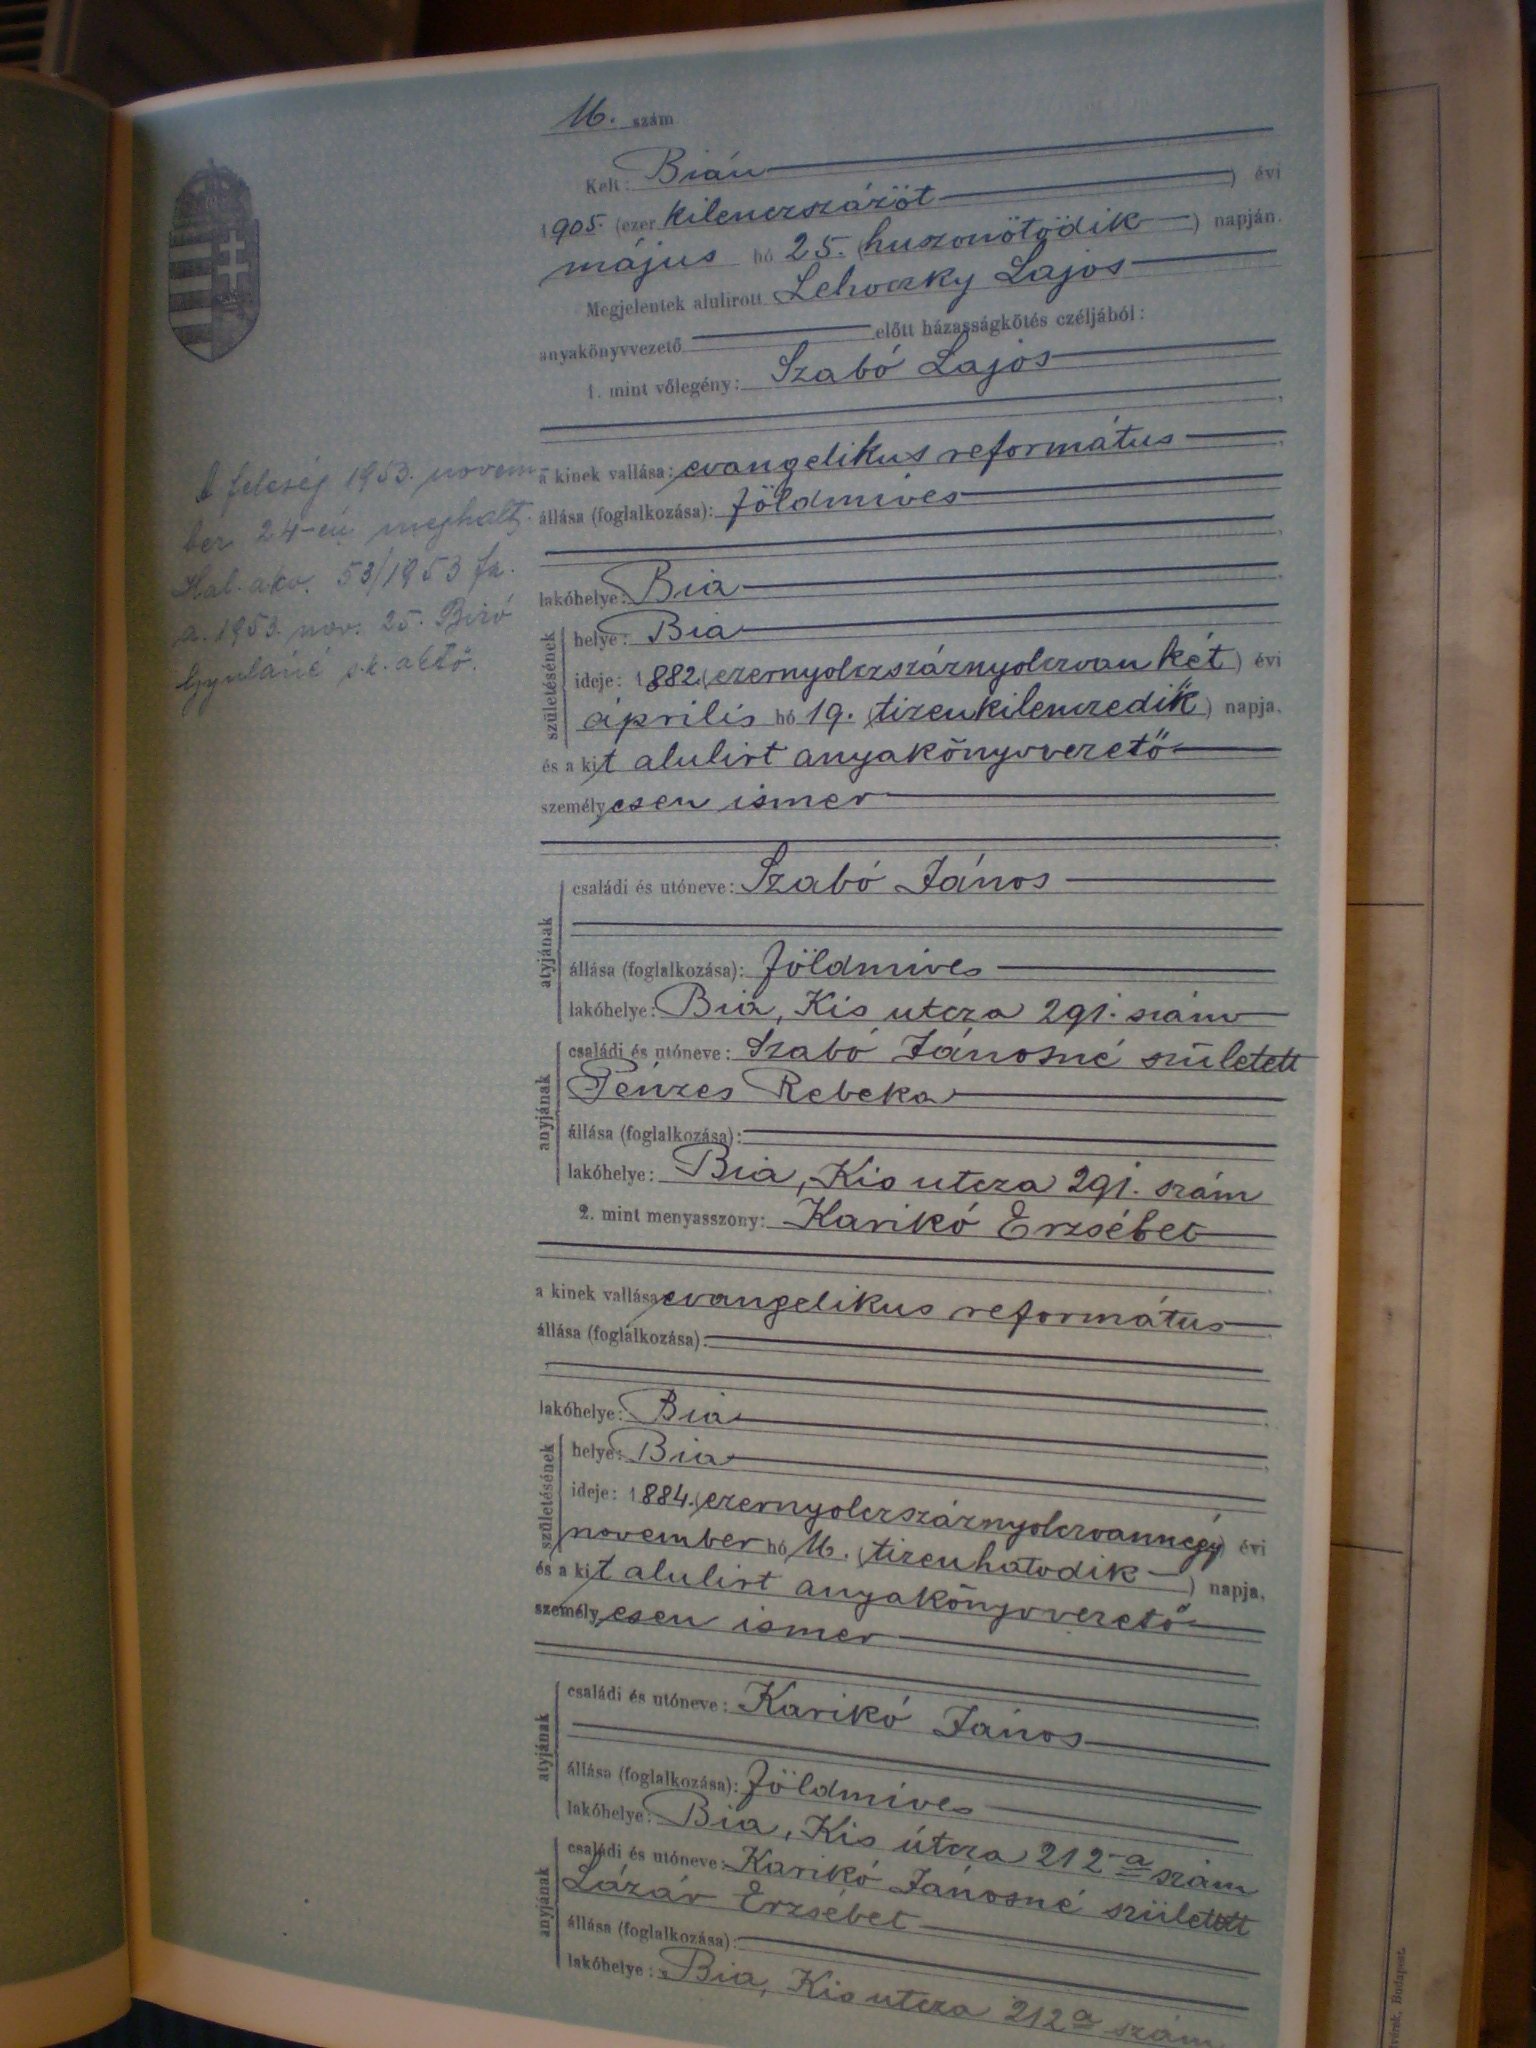 16. szám
Kelt: Bián
1905. (ezer kilenczszázöt ) évi
május hó 25. (huszonötödik ) napján.
Megjelentek alulirott Lehoczky Lajos
anyakönyvvezető előtt házasságkötés czéljából:
1. mint vőlegény: Szabó Lajos
a kinek vallása: evangelikus református
állása (foglalkozása): földmives
lakóhelye: Bia
születésének
helye: Bia
ideje: 1882. (ezernyolczszáznyolczvan két ) évi
április hó 19. (tizenkilenczedik ) napja,
és a kit alulirt anyakönyvvezető
személyesen ismer
atyjának
családi és utóneve: Szabó János
állása (foglalkozása): földmives
lakóhelye: Bia, Kis utcza 291. szám
anyjának
családi és utóneve: Szabó Jánosné született
Pénzes Rebeka
állása (foglalkozása):
lakóhelye: Bia, Kis utcza 291. szám
2. mint menyasszony: Karikó Erzsébet
a kinek vallása evangelikus református
állása (foglalkozása):
lakóhelye: Bia
születésének
helye: Bia
ideje: 1884. (ezernyolczszáznyolczvannégy) évi
november hó 16. (tizenhatodik ) napja,
és a kit alulirt anyakönyvvezető
személyesen ismer
atyjának
családi és utóneve: Karikó János
állása (foglalkozása): földmíves
lakóhelye: Bia, Kis útcza 212-a szám
anyjának
családi és utóneve: Karikó Jánosné született
Lázár Erzsébet
állása (foglalkozása):
lakóhelye: Bia, Kis utcza 212 a szám
A feleség 1953. novem-
ber 24-én meghalt.
Hal. akv. 53/1953 fk.
a. 1953. nov. 25. Biró
Gyuláné s.k. aktő.
Budapest.